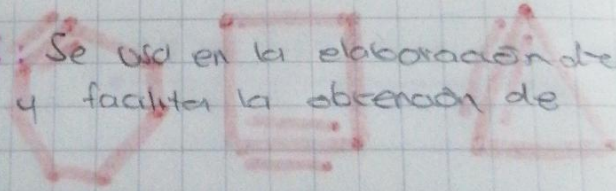 : Se usa en la elaboración de
y facilita la obtención de